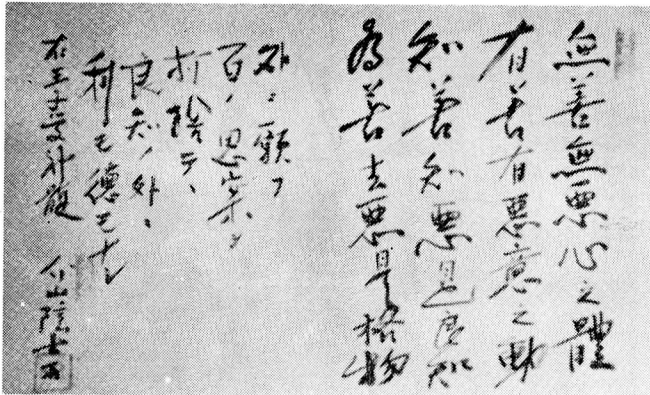 無善無悪心之體
有善有悪意之動
知善知悪是良知
為善去悪是格物
外ニ願フ
百ノ思案ヲ
打捨テヽ
良知ノ外ニ
利モ徳モナシ
右王子